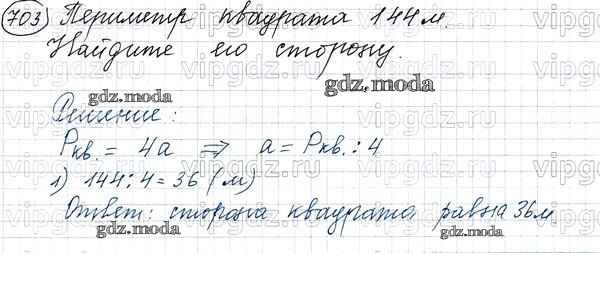 703 Периметр квадрата 144 м.
Найдите его сторону.
gdz.moda
gdz.moda
Решение:
Pкв. = 4a ⇒ a = Pкв. : 4
1) 144 : 4 = 36 (м)
Ответ: сторона квадрата равна 36 м
gdz.moda
gdz.moda